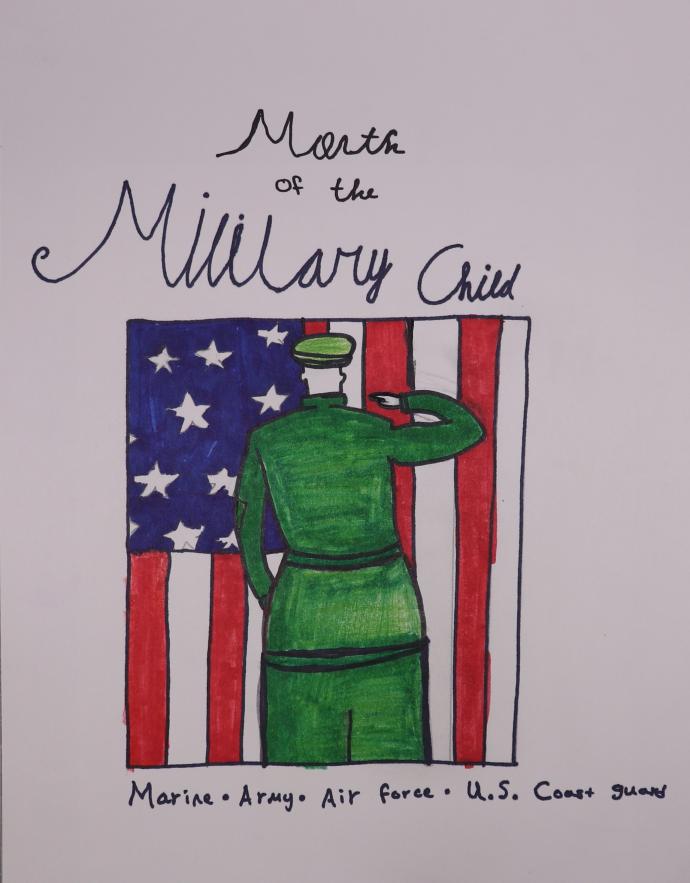 Month
of the
Military Child
Marine • Army • Air force • U.S. Coast guard